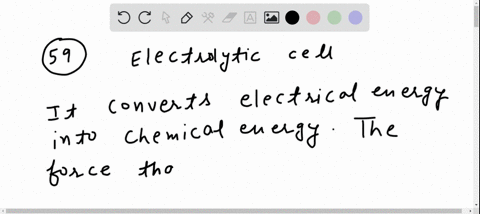 59 Electrolytic cell
It converts electrical energy
into chemical energy. The
force tho